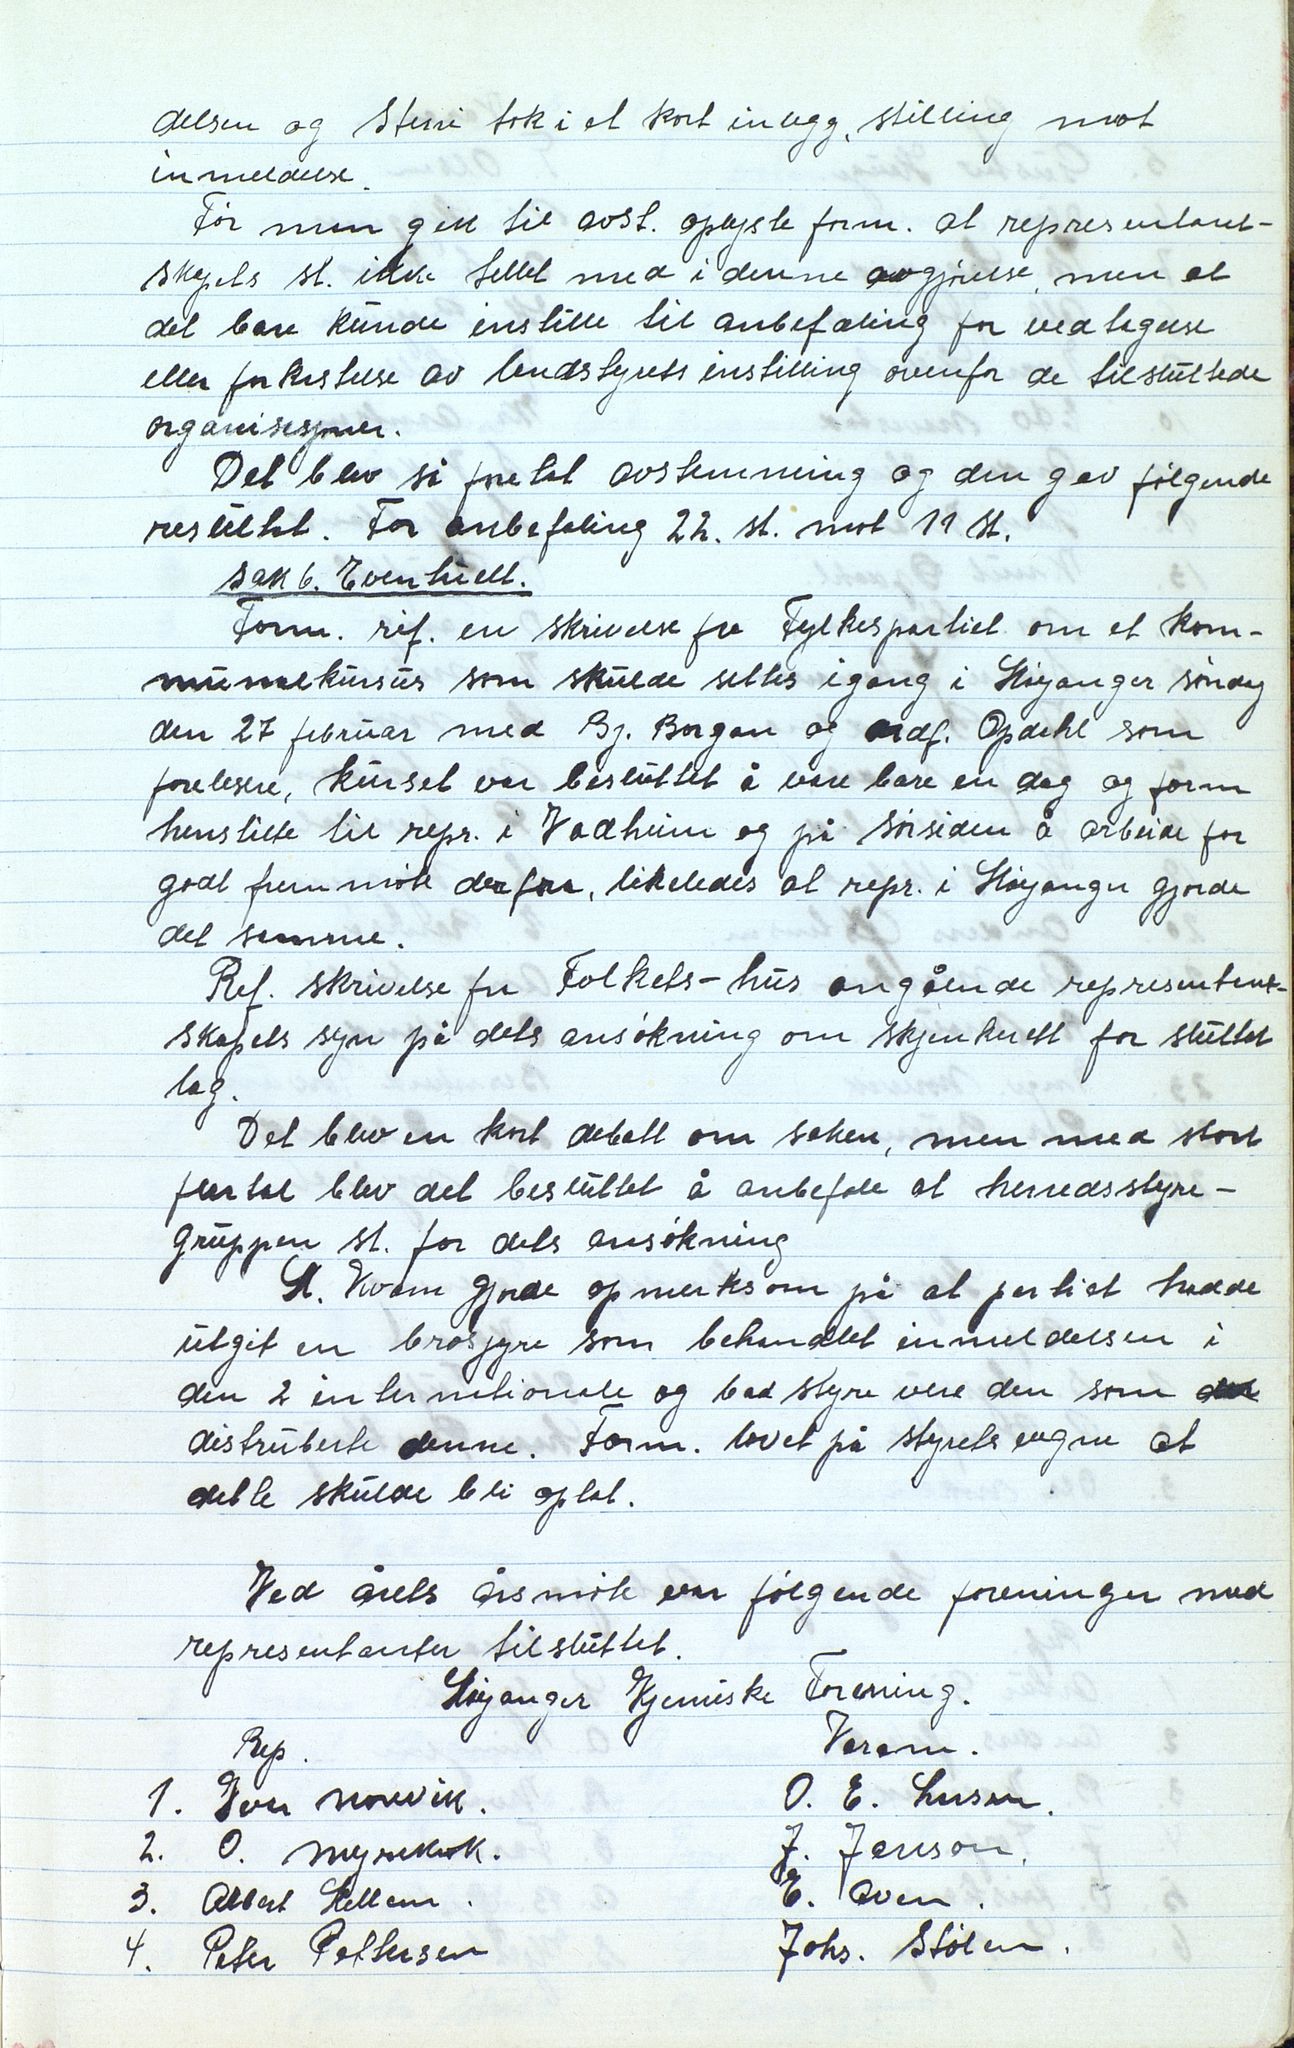 delsen og Sterri tok i et kort inlegg, stilling mot
inmeldelse.
Før man gik til avst. oplyste form. at representant-
skapets st. ikke tellet med i denne avgjørelse, men at
det bare kunde instille til anbefaling for vedtagelse
eller forkastelse av landstyrets instilling ovenfor de tilsluttede
organisasjoner.
Det blev så foretat avstemning og den gav følgende
resultat. For anbefaling 22. st. mot 11 st.
Sak 6. Eventuelt.
Form. ref. en skrivelse fra Fylkespartiet om et kom-
munalkursus som skulde settes igang i Høyanger søndag
den 27 februar med Bj. Borgan og ordf. Opdahl som
forelesere, kurset var besluttet å vare bare en dag og form
henstilte til repr. i Vadheim og på sørsiden å arbeide for
godt fremmøte derfra, likeledes at repr. i Høyanger gjorde
det samme.
Ref. skrivelse fra Folkets-hus angående representant-
skapets syn på dets ansøkning om skjenkerett for sluttet
lag.
Det blev en kort debatt om saken, men med stort
flertal blev det besluttet å anbefale at herredsstyre-
gruppen st. for dets ansøkning
Kvam gjorde opmerksom på at partiet hadde
utgit en brosjyre som behandlet inmeldelsen i
den 2 internationale og bad styre være den som
distruberte denne. Form. lovet på styrets vegne at
dette skulde bli optat.
Ved årets årsmøte var følgende foreninger med
representanter tilsluttet.
Høyanger Kjemiske Forening.
Rep. Varam.
1. Ivar Norevik. O. E. Larsen.
2. O. Myrekrok. J. Janson.
3. Albert Hellem. E. Aven.
4. Peter Pettersen Johs. Stølen.